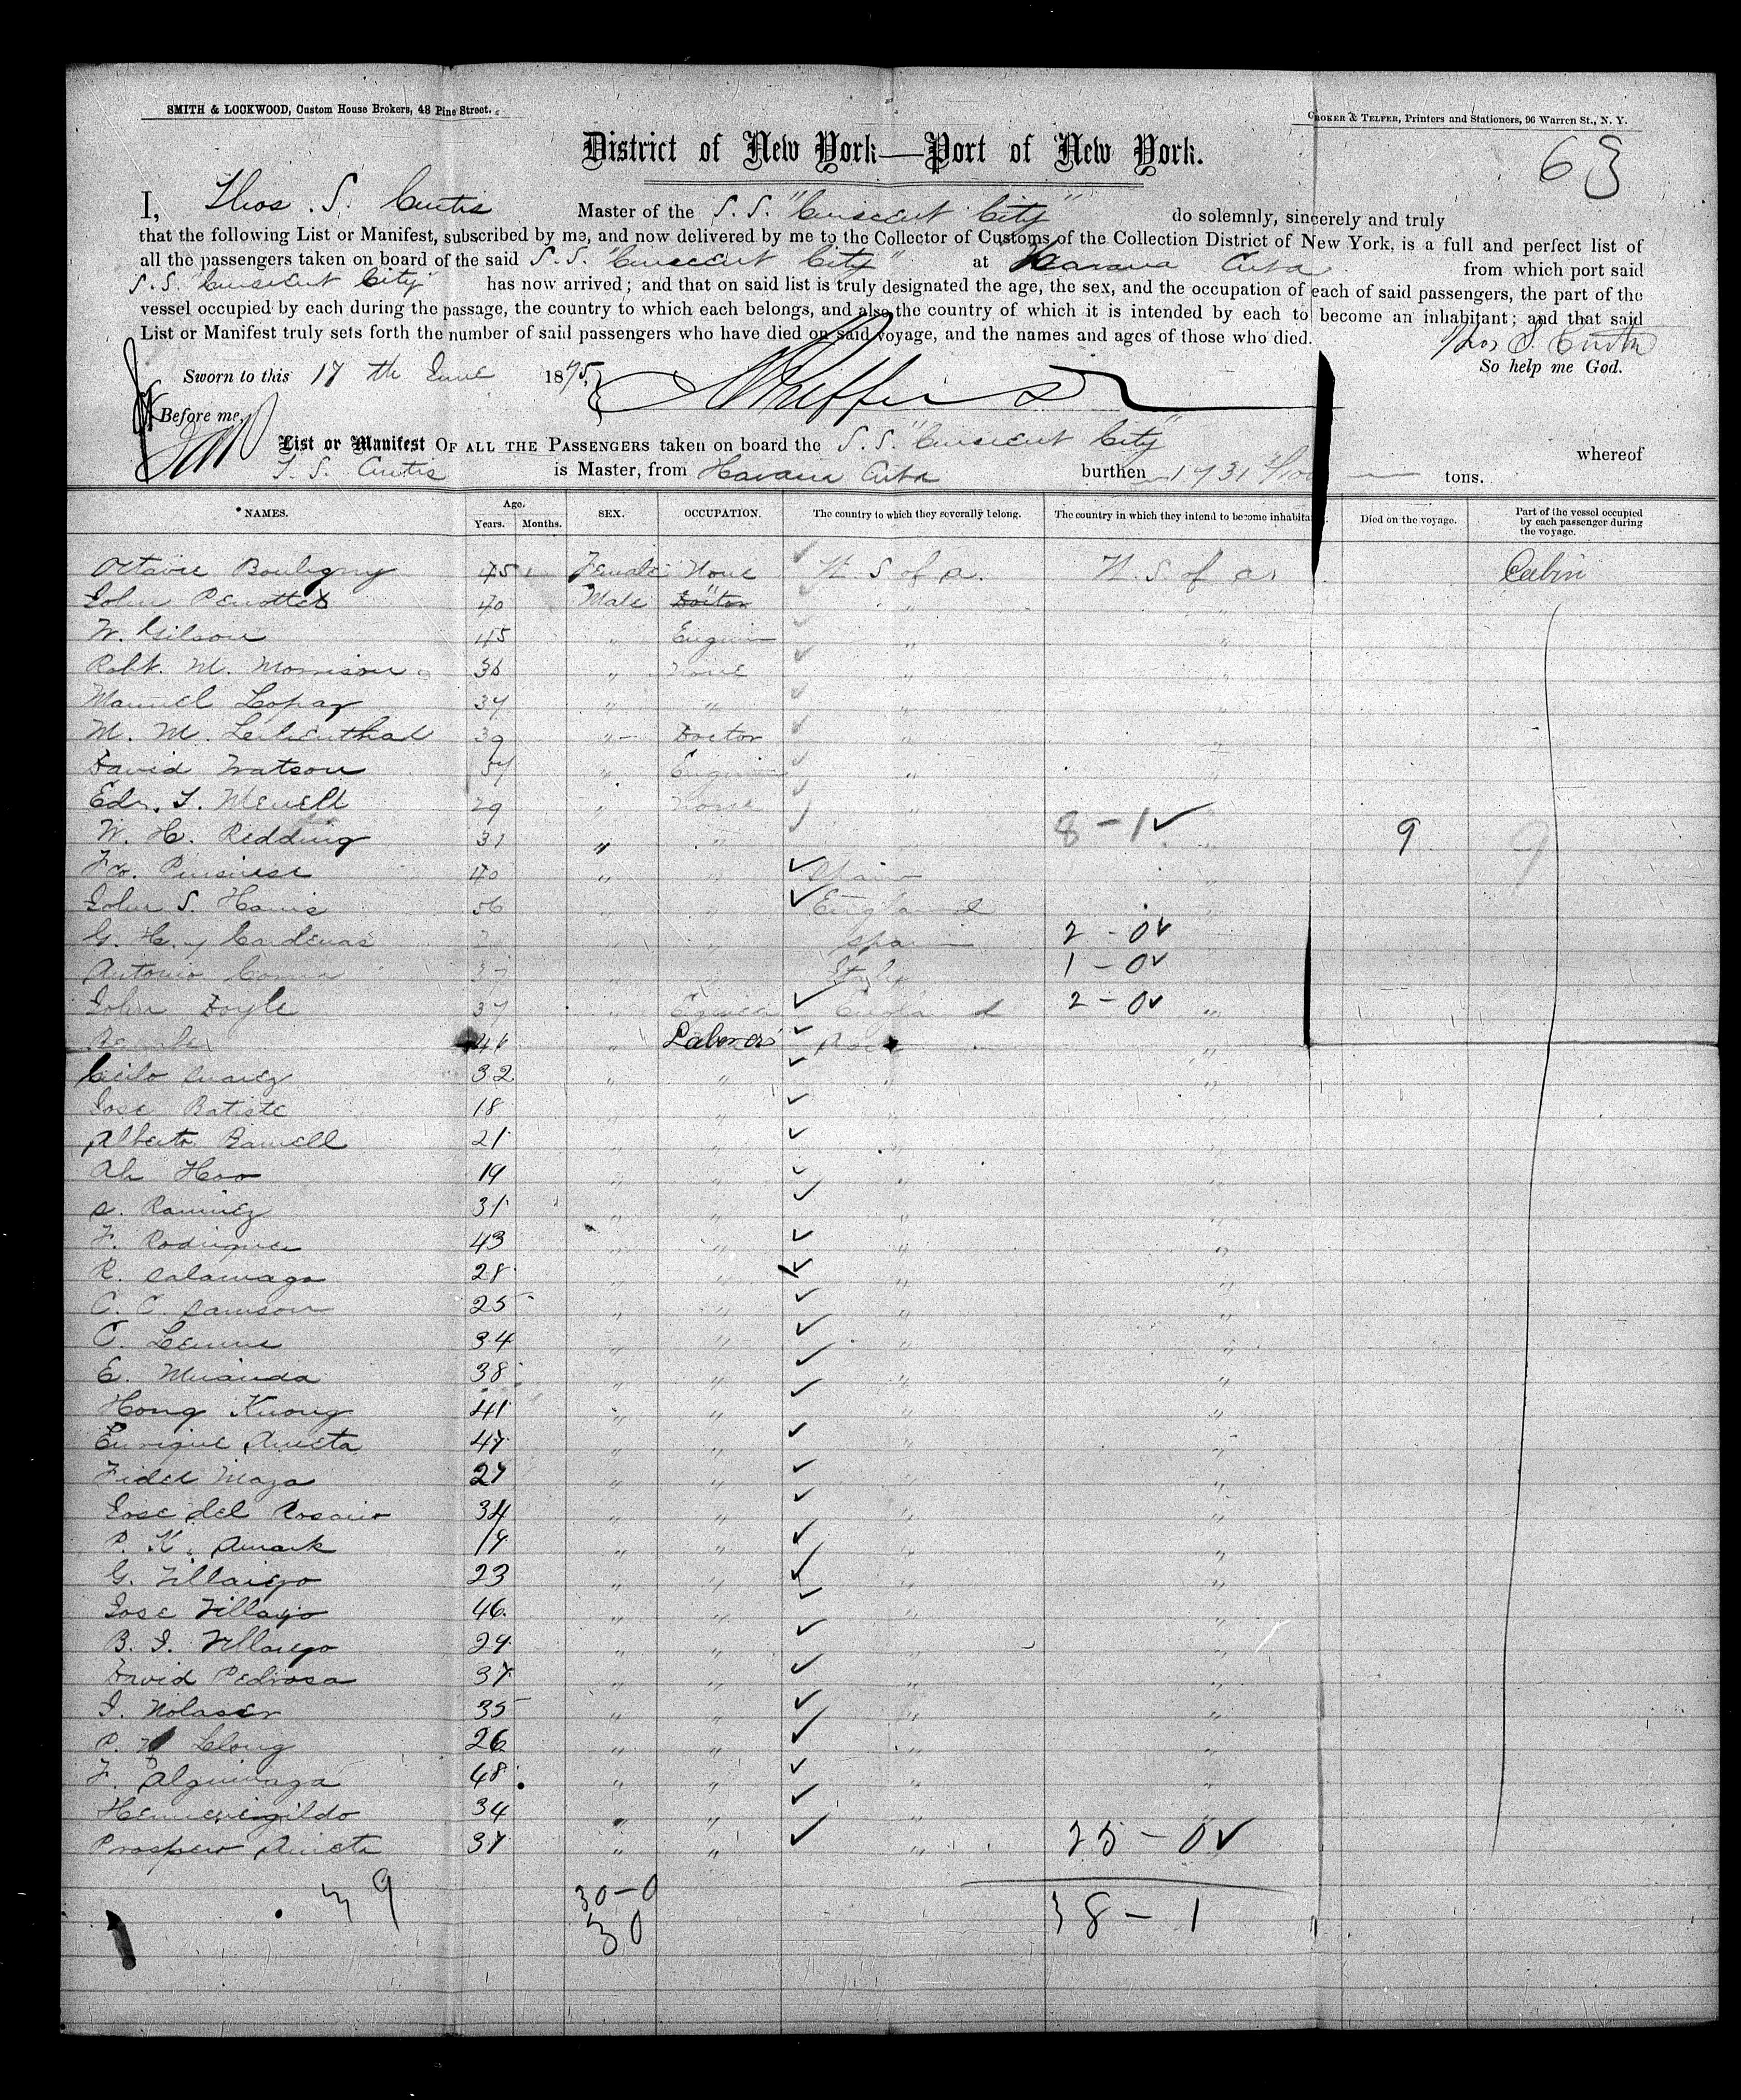 SMITH & LOCKWOOD, Custom House Brokers, 48 Pine Street.
CROKER & TELFER, Printers and Stationers, 96 Warren St., N. Y.
District of New York—Port of New York.
63
I, Thos. S. Curtis Master of the S. S. "Crescent City" do solemnly, sincerely and truly
that the following List or Manifest, subscribed by me, and now delivered by me to the Collector of Customs of the Collection District of New York, is a full and perfect list of
all the passengers taken on board of the said S. S. "Crescent City" at Havana Cuba from which port said
S. S. "Crescent City" has now arrived; and that on said list is truly designated the age, the sex, and the occupation of each of said passengers, the part of the
vessel occupied by each during the passage, the country to which each belongs, and also the country of which it is intended by each to become an inhabitant; and that said
List or Manifest truly sets forth the number of said passengers who have died on said voyage, and the names and ages of those who died.
Thos S. Curtis
So help me God.
Sworn to this 17th June 1875
Before me,
List or Manifest OF ALL THE PASSENGERS taken on board the S. S. "Crescent City" whereof
T. S. Curtis is Master, from Havana Cuba burthen 1731 tons.
NAMES. Age. Years. Months. SEX. OCCUPATION. The country to which they severally belong. The country in which they intend to become inhabitants. Died on the voyage. Part of the vessel occupied by each passenger during the voyage.
Octavie Bouligny 45 Female None U. S. of A. U. S. of A. Cabin
John 40 Male Doctor " "
W. Gilson 45 " " "
Robt. M. Morrison 36 " None " "
Manuel Lopaz 34 " " " "
M. M. Lilienthal 39 " Doctor " "
David Watson 57 " " "
Edw. T. 29 " None " "
W. H. Redding 31 " " " 8 - 1 9 9
Fco. 40 " " Spain "
John S. Harris 56 " " England "
G. H. y Cardenas " " Spain 2 - 0
Antonio 37 " " Italy 1 - 0
John Doyle 37 " England 2 - 0 "
41 " Laborers "
Suarez 32 " " " "
Jose Batiste 18 " " " "
Alberto 21 " " " "
Ah Hoo 19 " " " "
S. Ramirez 31 " " " "
F. Rodriguez 43 " " " "
R. Salamaga 28 " " " "
C. C. Samson 25 " " " "
C. 34 " " " "
E. Miranda 38 " " " "
Hong Kuong 41 " " " "
Enrique Arieta 47 " " " "
Fidel Maza 27 " " " "
Jose del Rosario 34 " " " "
P. K. 19 " " " "
G. Villaigo 23 " " " "
Jose Villaigo 46 " " " "
B. J. Villaigo 29 " " " "
David Pedrosa 37 " " " "
35 " " " "
P. Lelong 26 " " " "
F. 48 " " " "
Hermenegildo 34 " " " "
Prospero Arieta 37 " " " 25 - 0
39 30-0 38 - 1
30